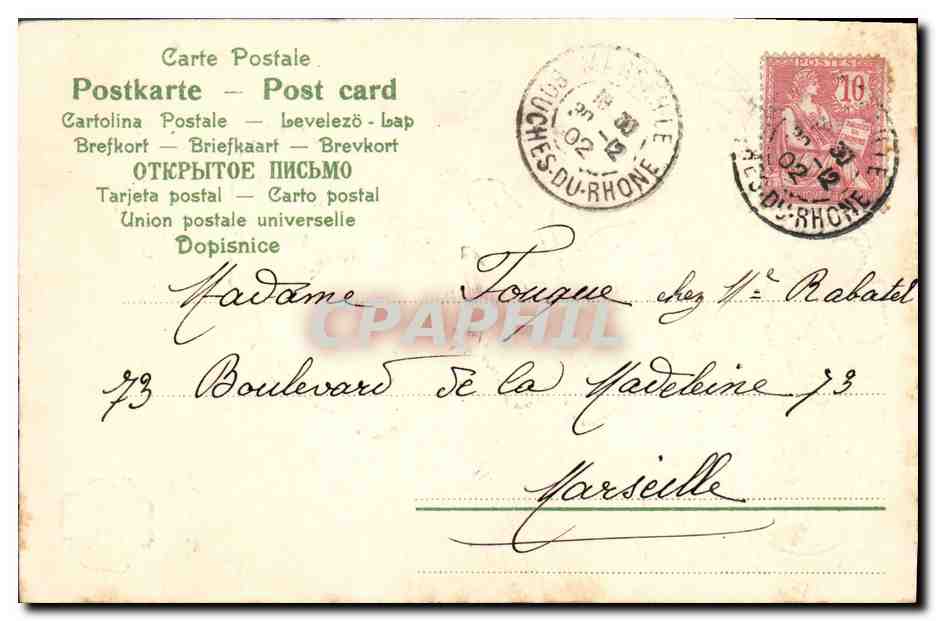 Carte Postale
Postkarte – Post card
Cartolina Postale — Levelezö-Lap
Brefkort — Briefkaart — Brevkort
ОТКРЫТОЕ ПИСЬМО
Tarjeta postal — Carto postal
Union postale universelle
Dopisnice
MARSEILLE
18 30
30 -12
02
BOUCHES-DU-RHONE
POSTES
10
30
-12
02
HES-DU-RHONE
Madame Fouque chez Mr Rabatel
CPAPHIL
73 Boulevard de la Madeleine 73
Marseille